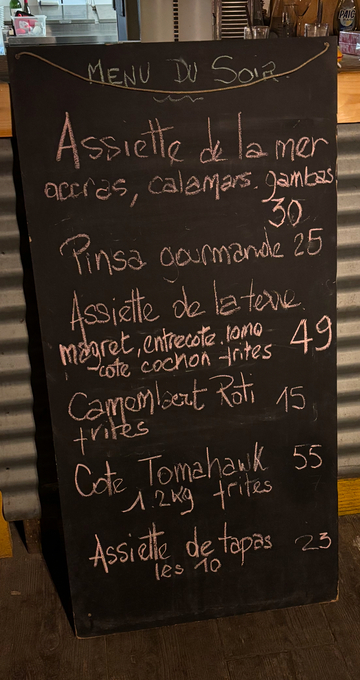 MENU DU SOIR
Assiette de la mer
accras, calamars. gambas
30
Pinsa gourmande 25
Assiette de la terre
magret, entrecote. lomo 49
cote cochon frites
Camembert Roti 15
frites
Cote Tomahawk 55
1.2kg frites
Assiette de tapas 23
les 10